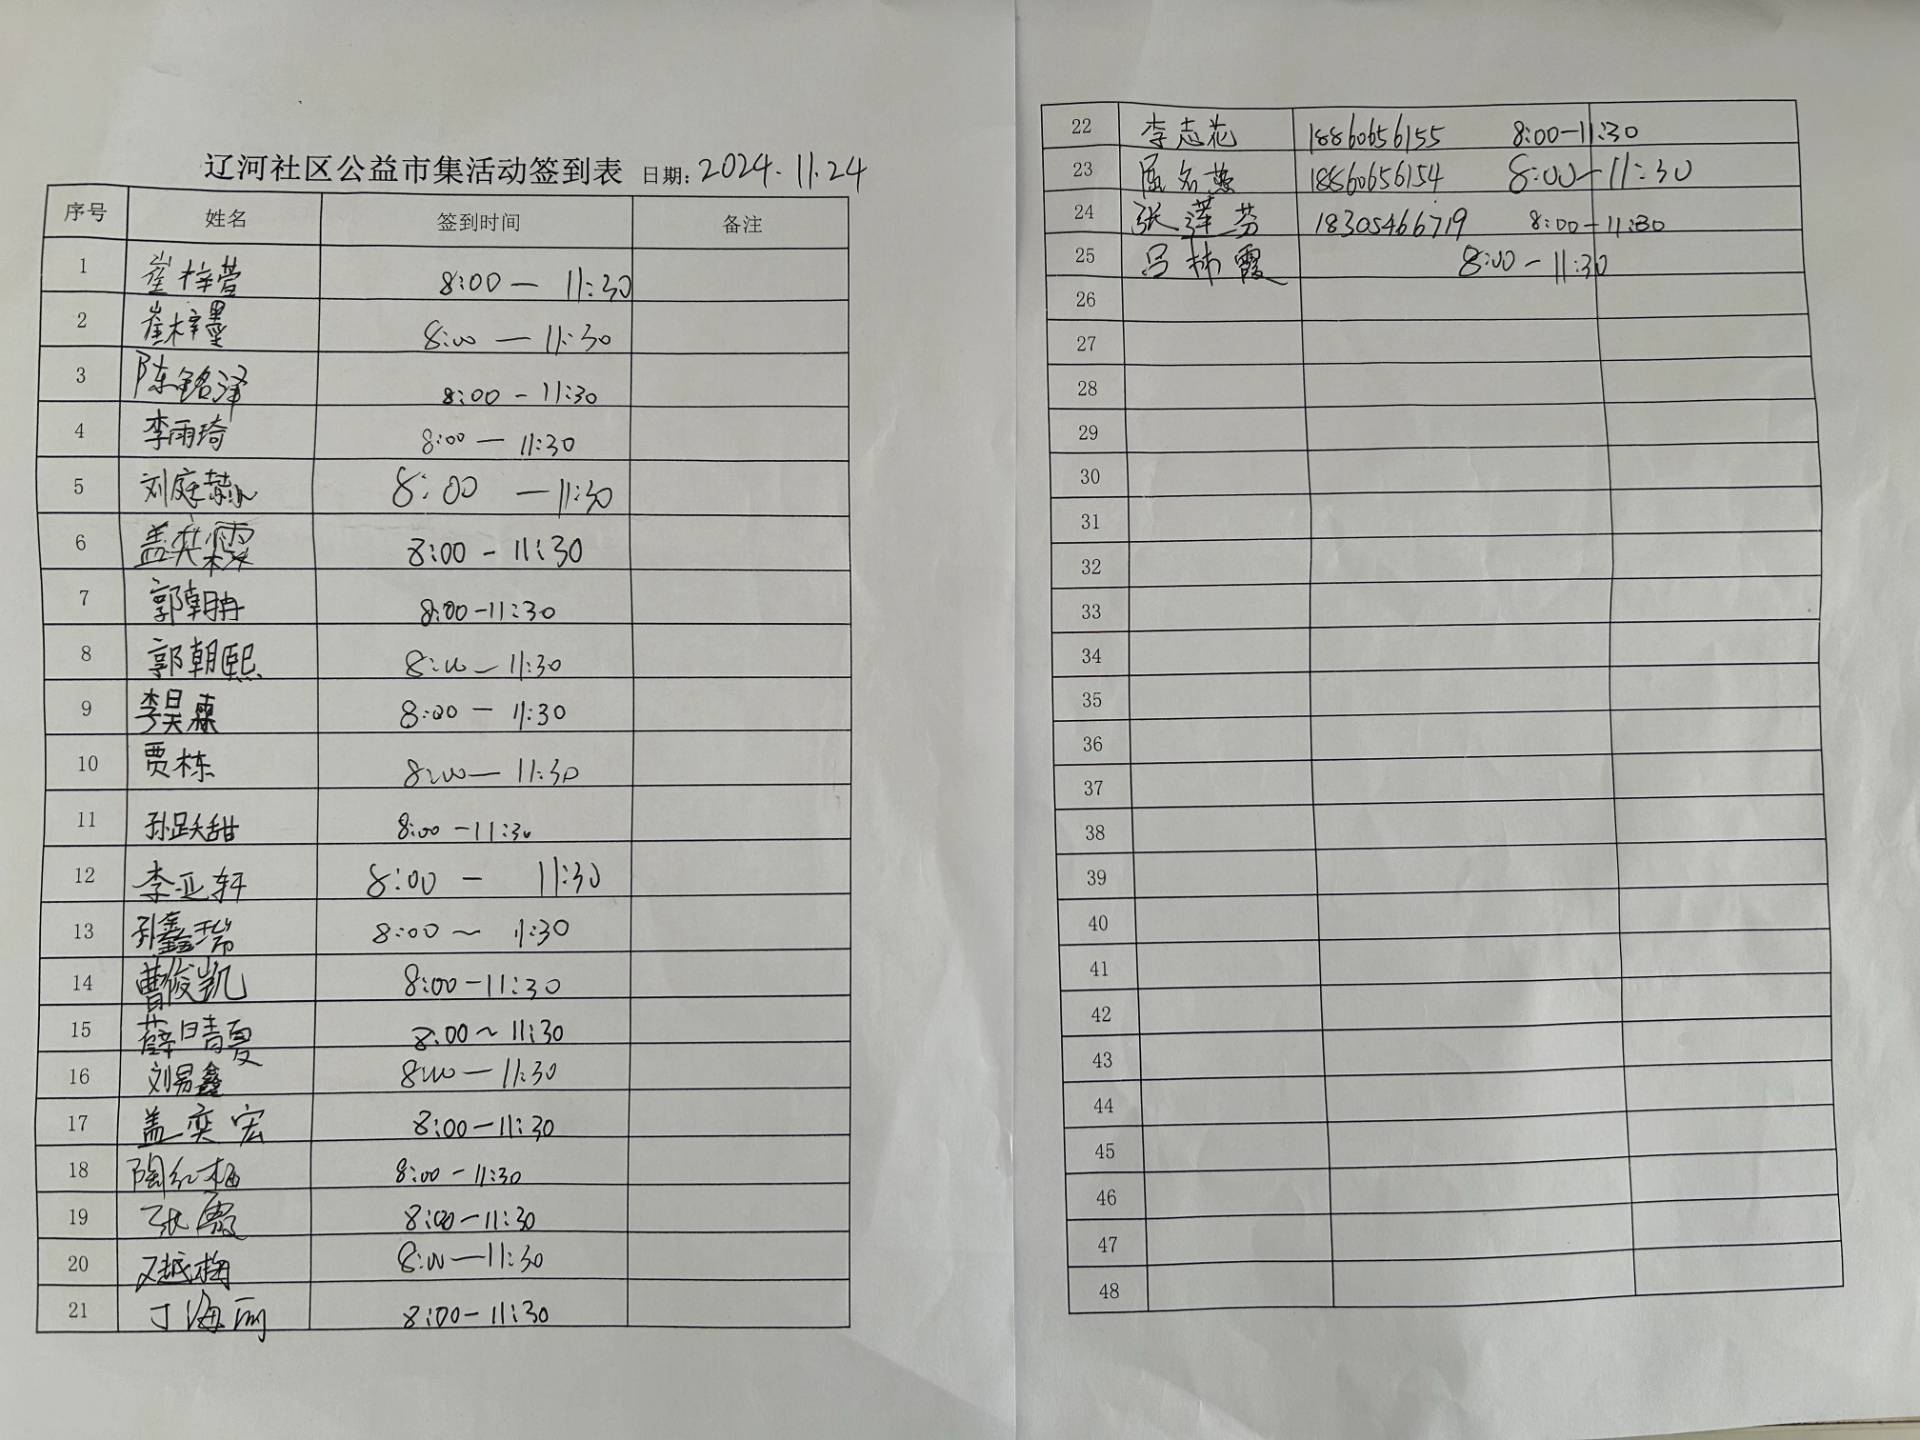 辽河社区公益市集活动签到表 日期: 2024.11.24
序号 姓名 签到时间 备注
1 崔梓萱 8:00 — 11:30
2 崔梓墨 8:00 — 11:30
3 陈铭泽 8:00 - 11:30
4 李雨琦 8:00 — 11:30
5 刘庭赫 8:00 — 11:30
6 盖奕霖 8:00 - 11:30
7 郭朝冉 8:00-11:30
8 郭朝熙 8:00 — 11:30
9 李昊霖 8:00 - 11:30
10 贾栋 8:00 — 11:30
11 孙跃甜 8:00 -11:30
12 李亚轩 8:00 - 11:30
13 孙鑫瑞 8:00 ~ 11:30
14 曹俊凯 8:00-11:30
15 薛晴夏 8:00 ~ 11:30
16 刘易鑫 8:00 — 11:30
17 盖奕宏 8:00-11:30
18 陶红梅 8:00-11:30
19 张霞 8:00-11:30
20 越梅 8:00—11:30
21 丁海丽 8:00-11:30
22 李志花 18860656155 8:00-11:30
23 名燕 18860656154 8:00-11:30
24 张泽芬 18305466719 8:00-11:30
25 吕林霞 8:00-11:30
26
27
28
29
30
31
32
33
34
35
36
37
38
39
40
41
42
43
44
45
46
47
48